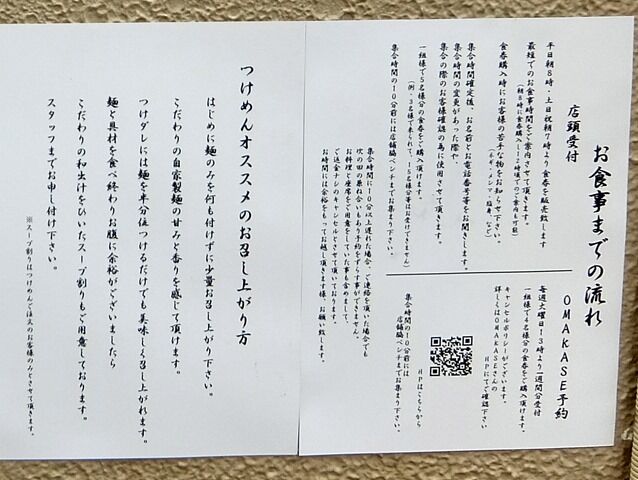 お食事までの流れ
店頭受付
平日朝8時・土日祝朝7時より食券を販売致します
最短でのお食事時間をご案内させて頂きます。
食券購入時にお客様の苦手な物をお知らせ下さい。
集合時間確定後、お名前とお電話番号等をお聞きします。
集合時間の変更があった際や、
集合の際のお客様確認の為に使用させて頂きます。
一組様で5名様分の食券をご購入頂けます。
集合時間の10分前には店舗脇ベンチまでお集まり下さい。
集合時間に10分以上遅れた場合、ご連絡を頂いた場合でも
次の回の兼ね合いもあり予約をずらす事ができません。
お料理と座席をご用意をしていた事も含めまして、
ご返金ナシのキャンセルとさせて頂いております。
お時間には余裕をもってお越し頂きます様、お願い致します。
OMAKASE予約
毎週火曜日13時より一週間分受付
一組様で4名様分の食券をご購入頂けます。
キャンセルポリシーがございます。
詳しくはOMAKASEさんの
HPにてご確認下さい
HPはこちらから
集合時間の10分前には
店舗脇ベンチまでお集まり下さい。
つけめんオススメのお召し上がり方
はじめに麺のみを何も付けずに少量お召し上がり下さい。
こだわりの自家製麺の甘みと香りを感じて頂けます。
つけダレには麺を半分位つけるだけでも美味しく召し上がれます。
麺と具材を食べ終わりお腹に余裕がございましたら
こだわりの和出汁をひいたスープ割りもご用意しております。
スタッフまでお申し付け下さい。
※スープ割りはつけめんご注文のお客様のみとさせて頂きます。